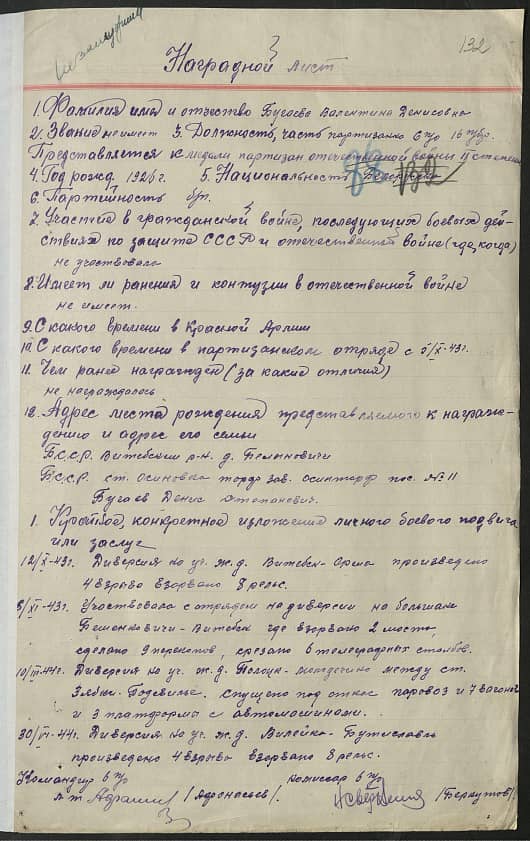 132
Наградной лист
1. Фамилия имя и отчество Бугаева Валентина Денисовна
2. Звание не имеет 3. Должность, часть партизанка 6 п/о 16 п/бр.
Представляется к медали партизан отечественной войны II степени
4. Год рожд. 1926 г. 5. Национальность Белоруска
6. Партейность б/п.
7. Участие в гражданской войне, последующих боевых дей-
ствиях по защите СССР и отечественной войне (где, когда)
не участвовала
8. Имеет ли ранения и контузии в отечественной войне
не имеет.
9. С какого времени в Красной Армии
10. С какого времени в партизанском отряде с 5/IX-43 г.
11. Чем ранее награжден (за какие отличия)
не награждалась
12. Адрес места рождения представляемого к награж-
дению и адрес его семьи
Б.С.С.Р. Витебский р-н. д.
Б.С.С.Р. ст. Осиновка торф. зав. Осинторф пос. № 11
Бугаев Денис Степанович.
1. Краткое, конкретное изложение личного боевого подвига
или заслуг
12/X-43 г. Диверсия на уч. ж.д. Витебск-Орша произведено
4 взрыва взорвано 8 рельс.
5/XI-43 г. Участвовала с отрядом на диверсии на большаке
Бешенковичи-Витебск где взорвано 2 моста,
сделано 9 перекопов, срезано 6 телеграфных столбов.
10/III-44 г. Диверсия на уч. ж.д. Полоцк-Молодечно между ст.
Зябки-Подсвилье. спущено под откос паровоз и 7 вагонов
и 3 платформы с автомашинами.
30/VI-44 г. Диверсия на уч. ж.д. Вилейка-Будислав
произведено 4 взрыва взорвано 8 рельс.
Командир 6 п/о Комиссар 6 п/о
/Афонасьев/. /Беркутов/.